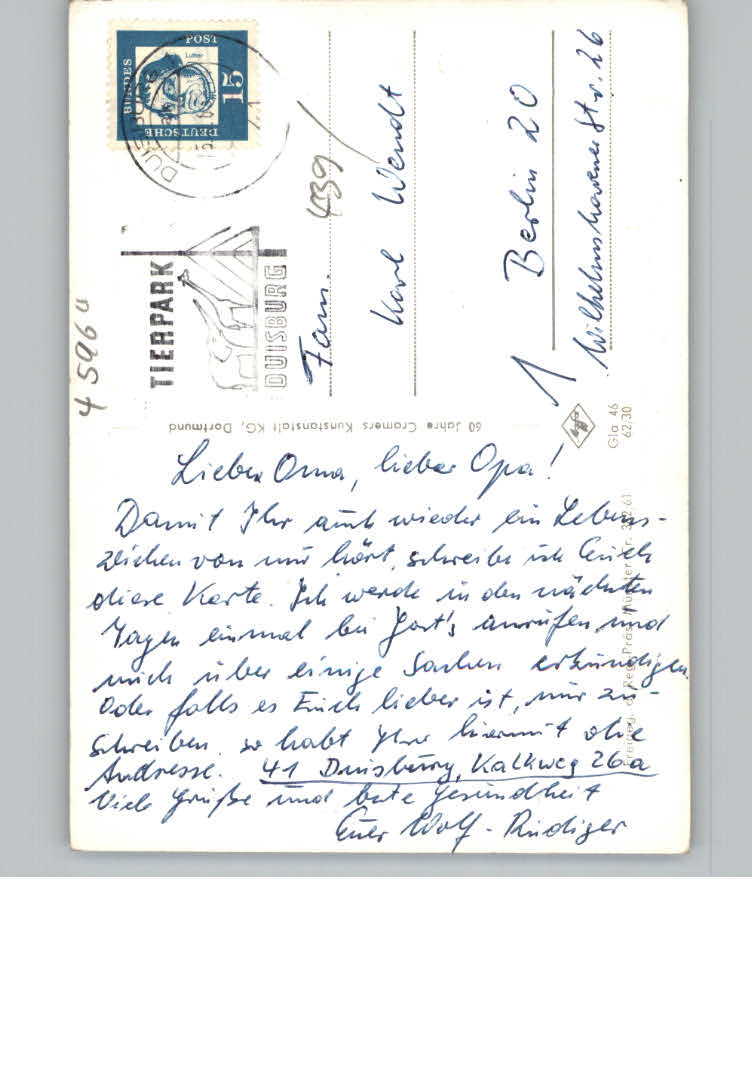 Liebe Oma, lieber Opa!
Damit Ihr auch wieder ein Lebens-
zeichen von mir hört, schreibe ich Euch
diese Karte. Ich werde in den nächsten
Tagen einmal bei Jost's anrufen und
mich über einige Sachen erkundigen
Oder falls es Euch lieber ist, mir zu-
schreiben, so habt Ihr hiermit die
Andresse. 41 Duisburg, Kalkweg 26a
Viele Grüße und beste Gesundheit
Euer Wolf-Rüdiger
Fam.
Karl Wendt
1 Berlin 20
Wilhelmshavener Str. 26
BUNDES
POST
DEUTSCHE
Luther
15
DUISBURG
TIERPARK
DUISBURG
4391
45964
60 Jahre Cramers Kunstanstalt KG, Dortmund
Gla 46
62/30